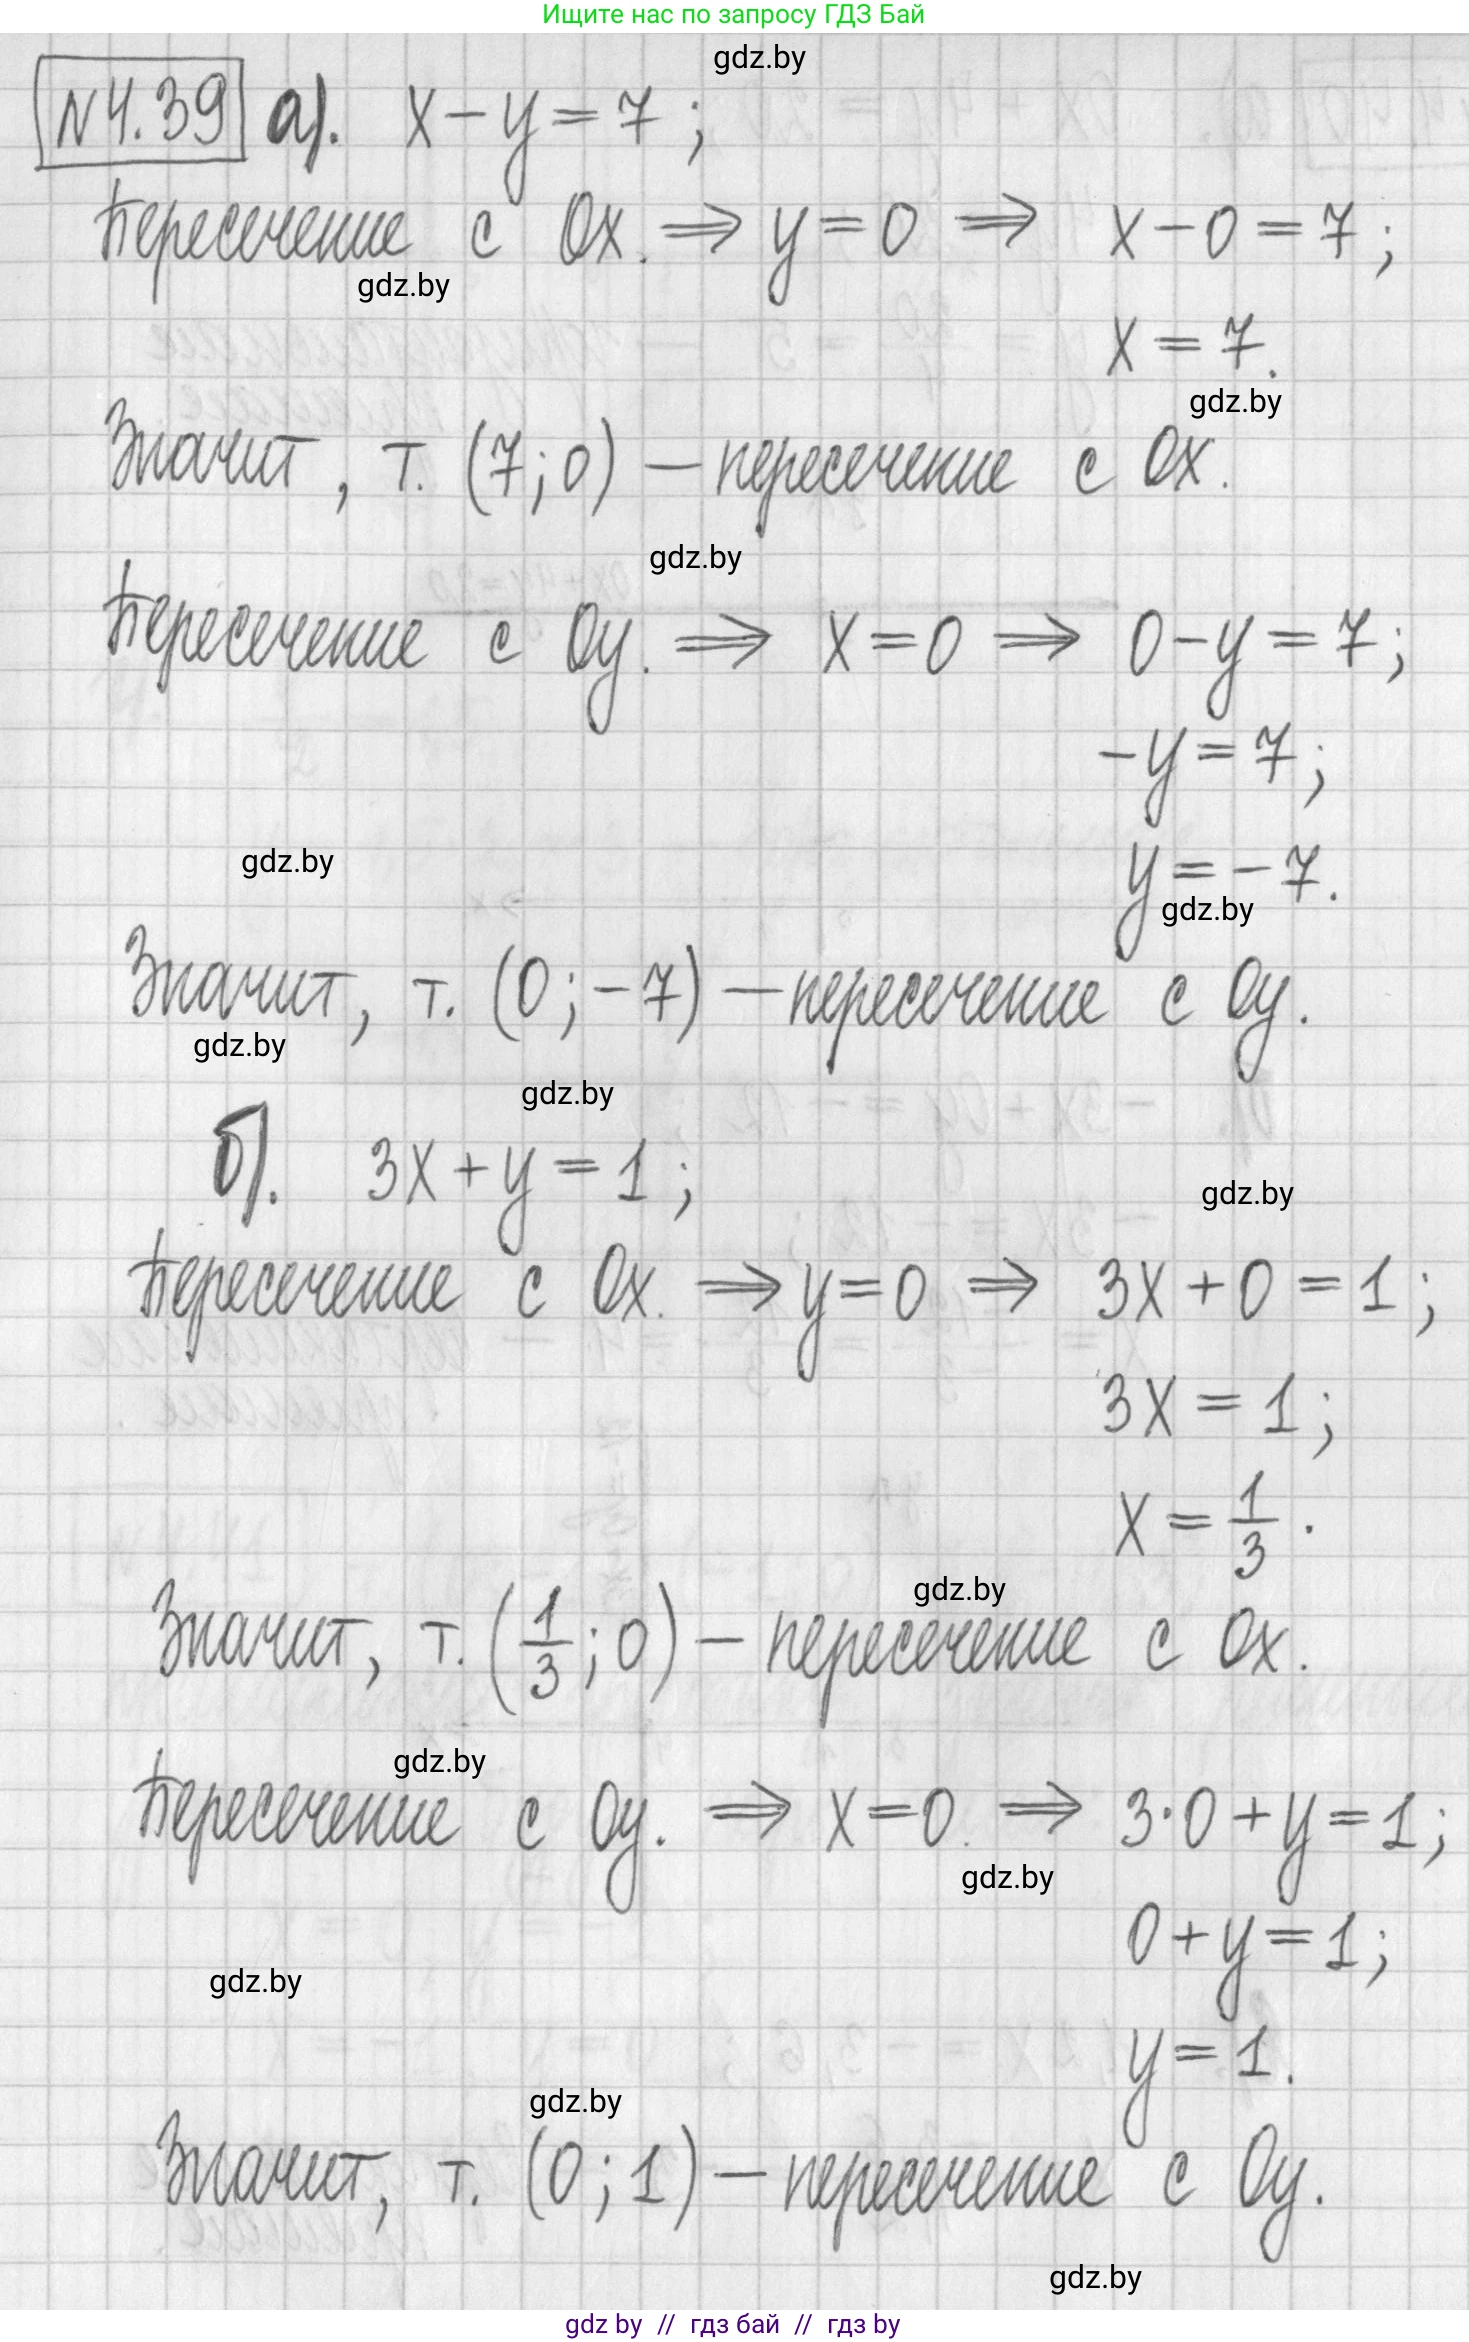 Ищите нас по запросу ГДЗ Бай
gdz.by
№4.39 а). x - y = 7 ;
Пересечение с Ox. ⇒ y = 0 ⇒ x - 0 = 7 ;
gdz.by
x = 7.
gdz.by
Значит, т. (7; 0) — пересечение с Ox.
gdz.by
Пересечение с Oy. ⇒ x = 0 ⇒ 0 - y = 7;
-y = 7 ;
gdz.by
y = -7.
gdz.by
Значит, т. (0 ; -7) — пересечение с Oy.
gdz.by
gdz.by
б). 3x + y = 1 ;
gdz.by
Пересечение с Ox. ⇒ y = 0 ⇒ 3x + 0 = 1 ;
3x = 1 ;
x = 1/3 .
gdz.by
Значит, т. (1/3 ; 0) — пересечение с Ox.
gdz.by
Пересечение с Oy. ⇒ x = 0. ⇒ 3·0 + y = 1 ;
gdz.by
0 + y = 1 ;
gdz.by
y = 1.
gdz.by
Значит, т. (0 ; 1) — пересечение с Oy.
gdz.by
gdz by // гдз бай // гдз by